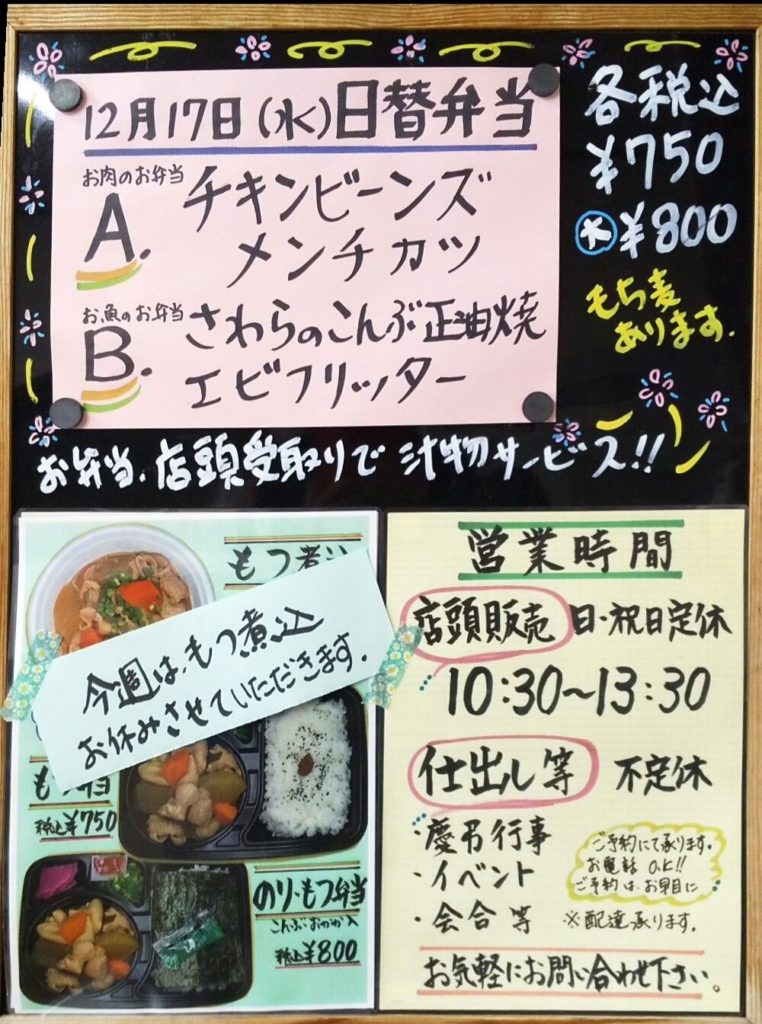 12月17日(水)日替弁当
お肉のお弁当
A. チキンビーンズ
メンチカツ
お魚のお弁当
B. さわらのこんぶ正油焼
エビフリッター
各税込
¥750
大¥800
もち麦
あります.
お弁当、店頭受取りで 汁物サービス!!
もつ煮込
今週は、もつ煮込
お休みさせていただきます.
税込¥750
のり・もつ弁当
こんぶ・おかか入
税込¥800
営業時間
店頭販売 日・祝日定休
10:30~13:30
仕出し等 不定休
・慶弔行事
・イベント
・会合 等
ご予約にて承ります。
お電話 O.K!!
ご予約は、お早目に
※配達承ります.
お気軽にお問い合わせ下さい。